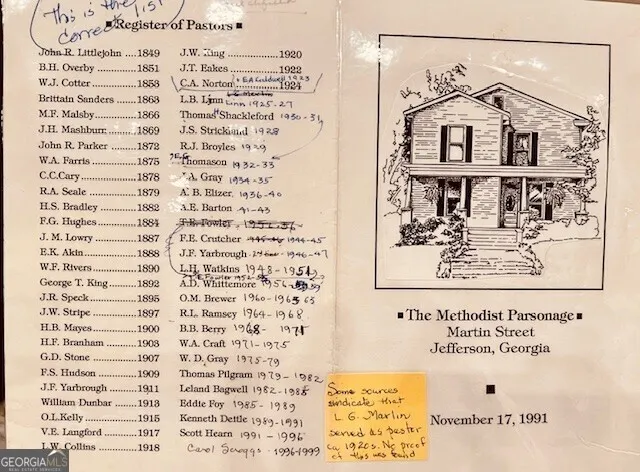 This is the
correct list
■Register of Pastors■
John R. Littlejohn ....1849
B.H. Overby ....1851
W.J. Cotter ....1853
Brittain Sanders ....1863
M.F. Malsby ....1866
J.H. Mashburn ....1869
John R. Parker ....1872
W.A. Farris ....1875
C.C.Cary ....1878
R.A. Seale ....1879
H.S. Bradley ....1882
F.G. Hughes ....1884
J. M. Lowry ....1887
E.K. Akin ....1888
W.F. Rivers ....1890
George T. King ....1892
J.R. Speck ....1895
J.W. Stripe ....1897
H.B. Mayes ....1900
H.F. Branham ....1903
G.D. Stone ....1907
F.S. Hudson ....1909
J.F. Yarbrough ....1911
William Dunbar ....1913
O.L.Kelly ....1915
V.E. Langford ....1917
L.W. Collins ....1918
J.W. King ....1920
J.T. Eakes ....1922
+ EA Caldwell 1923
C.A. Norton ....1924
L.B. Linn
Linn 1925-27
Thomas Shackleford 1930-31
J.S. Strickland 1928
R.J. Broyles 1929
Thomason 1932-33
A. Gray 1934-35
A. B. Elizer, 1936-40
A.E. Barton 41-43
T.E. Fowler
F.E. Crutcher 1944-45
J.F. Yarbrough 1946-47
L.H. Watkins 1948-1951
A.D. Whittemore 1956
O.M. Brewer 1960-1963 63
R.L. Ramsey 1964-1968
B.B. Berry 1968- 1971
W.A. Craft 1971-1975
W. D. Gray 1975-79
Thomas Pilgram 1979-1982
Leland Bagwell 1982-1985
Eddie Foy 1985-1989
Kenneth Dettle 1989-1991
Scott Hearn 1991-1996
Carol Scroggs - 1996-1999
■The Methodist Parsonage■
Martin Street
Jefferson, Georgia
■
November 17, 1991
Some sources
indicate that
L G. Marlin
served as pastor
ca 1920s. No proof
of this was found
GEORGIAMLS
REAL ESTATE SERVICES